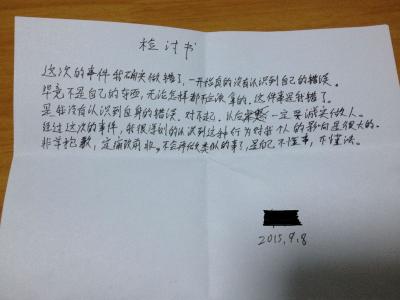 检讨书
这次的事件我确实做错了,一开始真的没有认识到自己的错误。
毕竟不是自己的东西,无论怎样都不应该拿的。这件事是我错了。
是我没有认识到自身的错误,对不起。以后一定要诚实做人。
经过这次的事件,我很深刻的认识到这种行为对我个人的影响是很大的。
非常抱歉,定痛改前非。不会再做类似的事了,是自己不懂事,不懂法。
2015.9.8